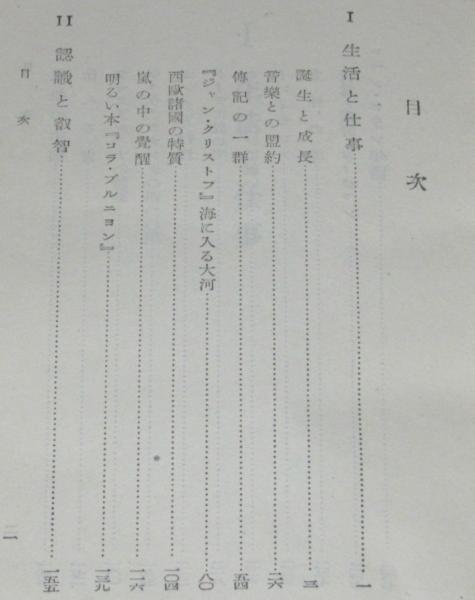 目次
I 生活と仕事……一
誕生と成長……三
音樂との盟約……二六
傳記の一群……五四
『ジャン・クリストフ』海に入る大河……八〇
西歐諸國の特質……一〇四
嵐の中の覺醒……一一六
明るい本『コラ・ブルニヨン』……一三九
II 認識と叡智……一五五
目次
二